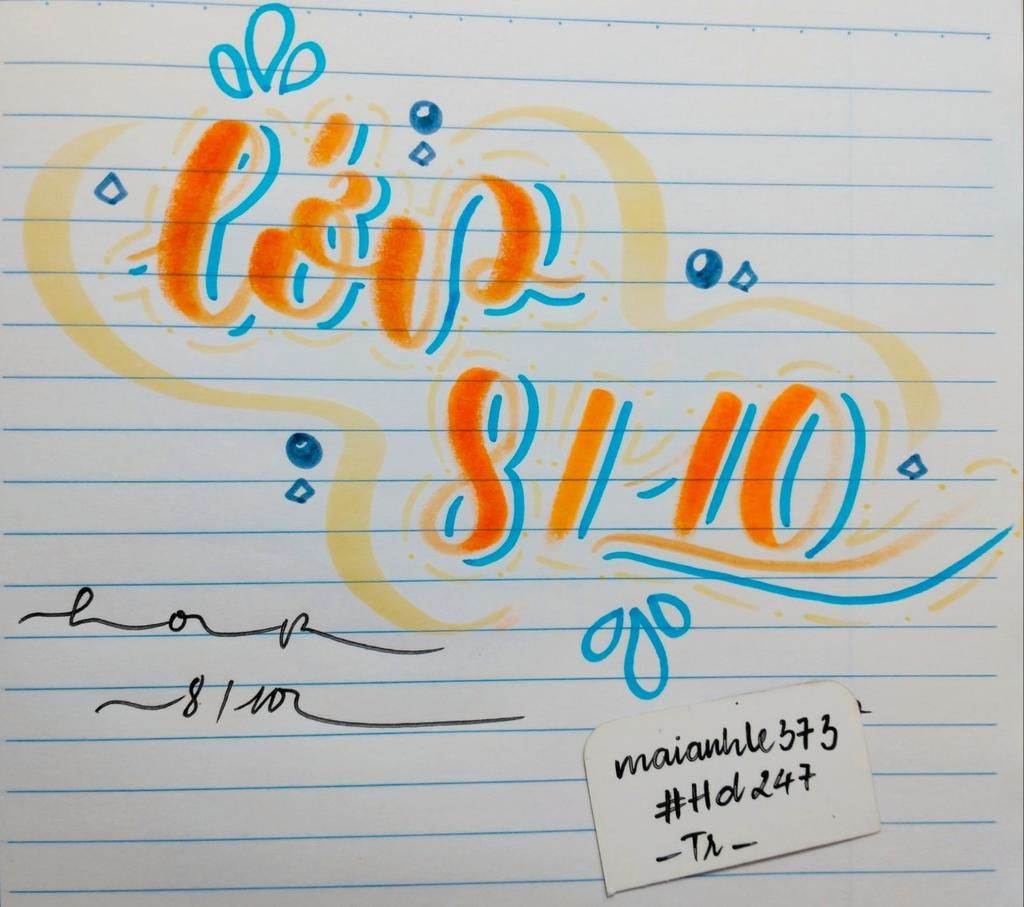 lớp
8/10
lớp
8/10
maianhle373
#Hd247
-Tr-